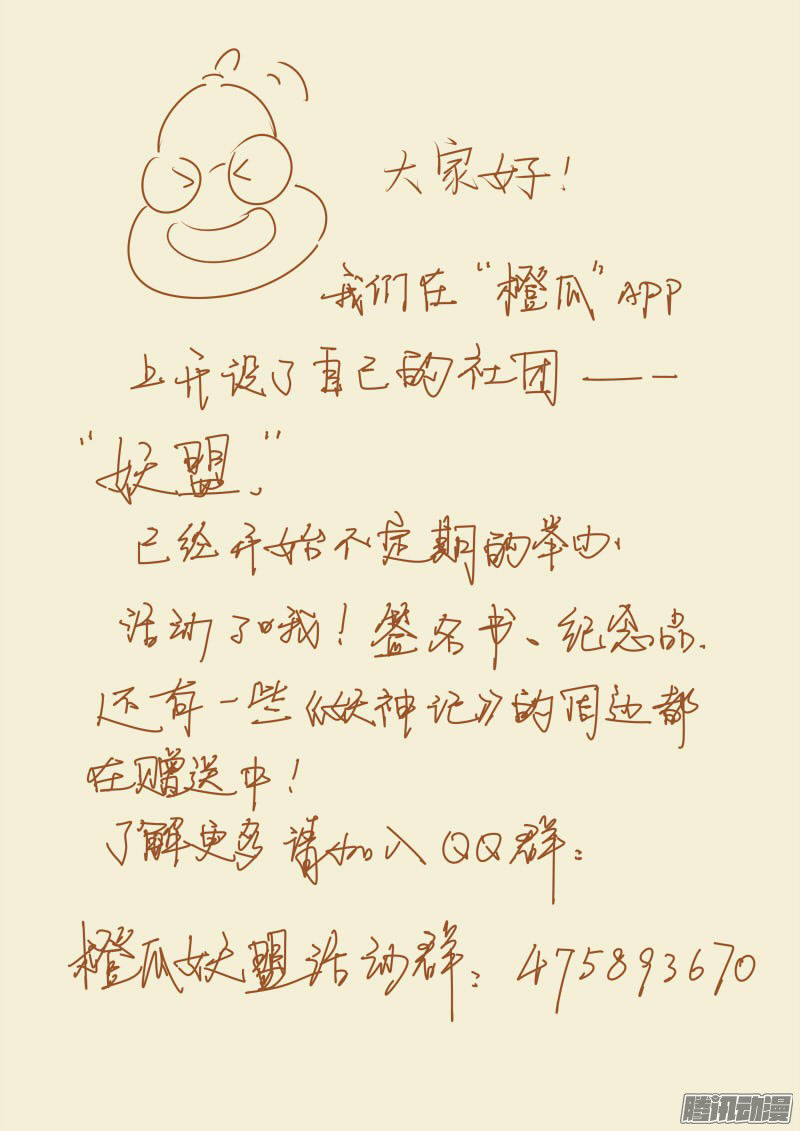 大家好！
我们在“橙瓜”APP
上开设了自己的社团——
“妖盟。”
已经开始不定期的举办
活动了哦！签名书、纪念品、
还有一些《妖神记》的周边都
在赠送中！
了解更多请加入QQ群：
橙瓜妖盟活动群：475893670
腾讯动漫